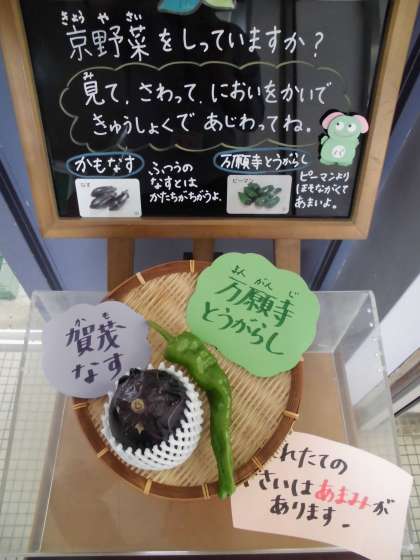 きょう や さい
京野菜をしっていますか?
み
見て、さわって、においをかいで
きゅうしょくであじわってね。
かもなす
なす
ふつうの
なすとは
かたちがちがうよ。
万願寺とうがらし
ピーマン
ピーマンより
ほそながくて
あまいよ。
か も
賀茂
なす
まん がん じ
万願寺
とうがらし
れたての
さいはあまみが
あります。